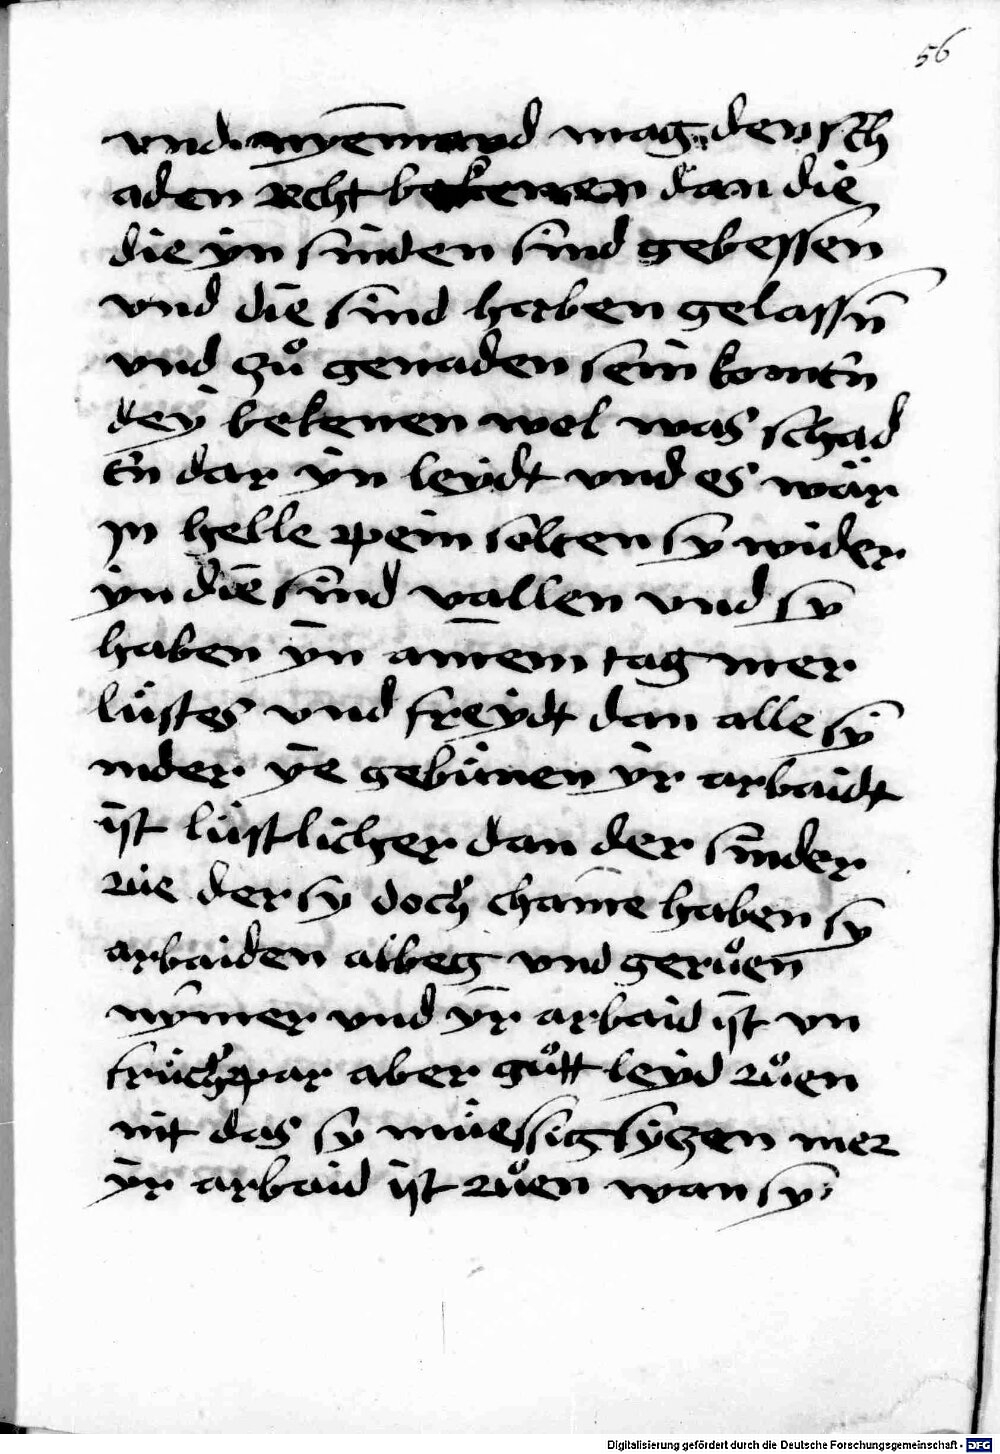 56
vnd nyemand mag den sch
aden recht bekenen dan die
die yn sinden sind gebessen
vnd die sind haben gelassn̄
vnd zů genaden sein komen
dey bekenen wol was schad
dar yn leydt vnd es wär
yn helle pein solten sy wider
yn die sind vallen vnd sy
haben yn ainem tag mer
lüstes vnd freydt dan alle sy
nder ye gebinen yr arbaidt
ist lüstlicher dan der sinder
rüe der sy doch chaine haben sy
arbaiden albeg vnd gerůen
nymer vnd yr arbaid ist vn
früchpar aber gůtt leyd růen
nit das sy müessig syzen mer
yr arbaid ist růen wan sy
Digitalisierung gefördert durch die Deutsche Forschungsgemeinschaft - DFG